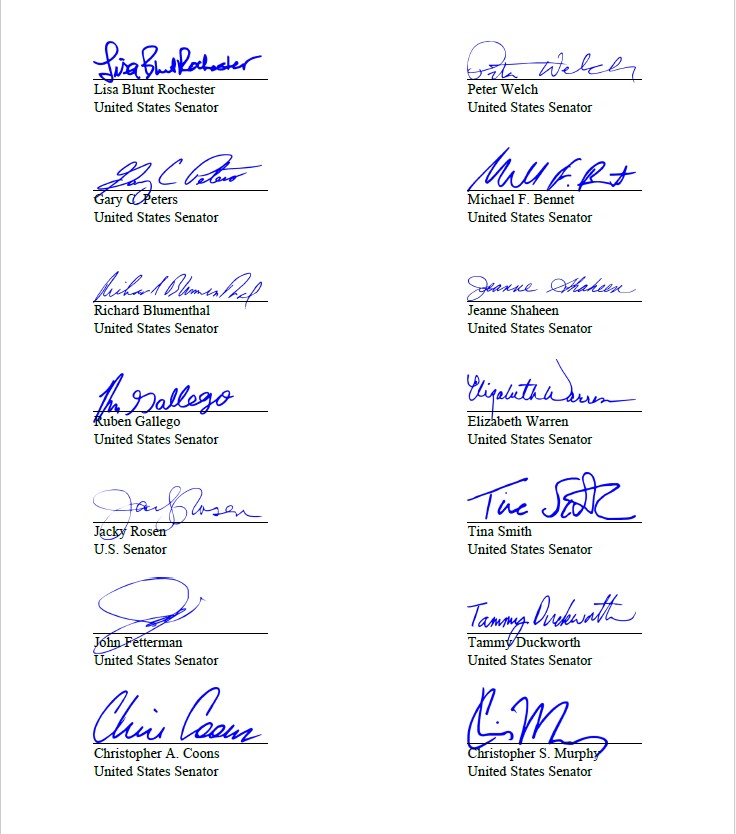 Lisa Blunt Rochester
Lisa Blunt Rochester
United States Senator
Peter Welch
Peter Welch
United States Senator
Gary C Peters
Gary C. Peters
United States Senator
Michael F. Bennet
United States Senator
Richard Blumenthal
Richard Blumenthal
United States Senator
Jeanne Shaheen
Jeanne Shaheen
United States Senator
Gallego
Ruben Gallego
United States Senator
Elizabeth Warren
Elizabeth Warren
United States Senator
Jacky Rosen
Jacky Rosen
U.S. Senator
Tina Smith
Tina Smith
United States Senator
John Fetterman
United States Senator
Tammy Duckworth
Tammy Duckworth
United States Senator
Chris Coons
Christopher A. Coons
United States Senator
Christopher S. Murphy
United States Senator